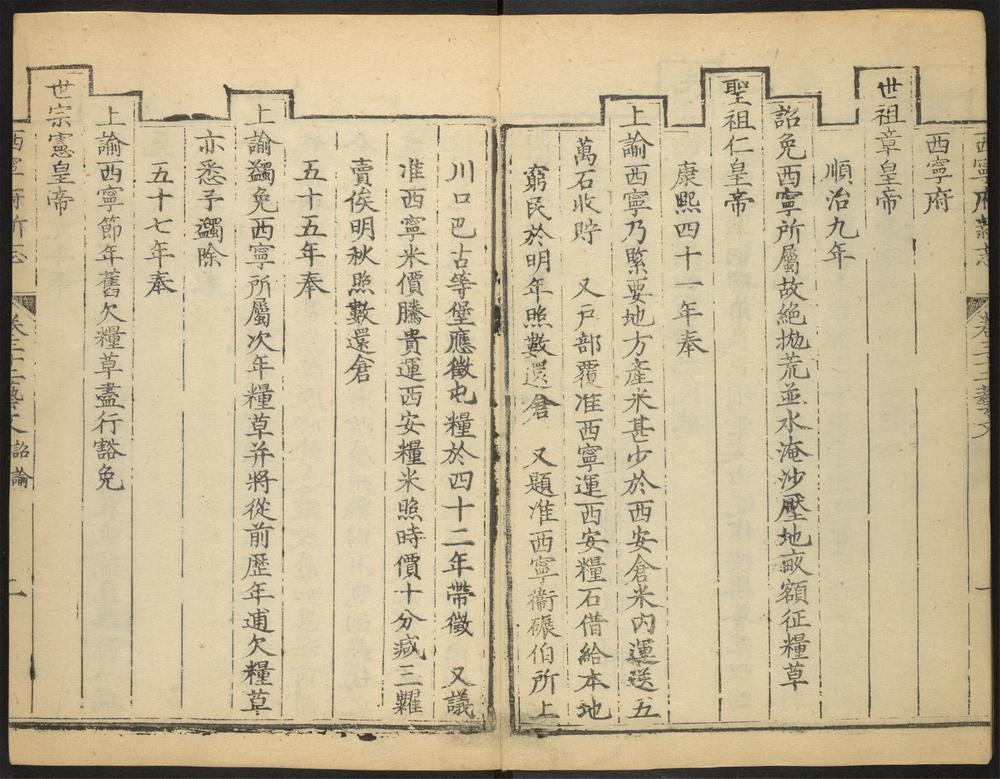 西寧府新志 卷三十二藝文 一
西寧府
世祖章皇帝
順治九年
詔免西寧所屬故絶抛荒並水淹沙壓地畝額征糧草
聖祖仁皇帝
康熙四十一年奉
上諭西寧乃緊要地方產米甚少於西安倉米內運送五
萬石收貯 又戸部覆准西寧運西安糧石借給本地
窮民於明年照數還倉 又題准西寧衞碾伯所上
川口巴古等堡應徵屯糧於四十二年帶徵 又議
准西寧米價騰貴運西安糧米照時價十分减三糶
賣俟明秋照數還倉
五十五年奉
上諭蠲免西寧所屬次年糧草并將從前歷年逋欠糧草
亦悉予蠲除
五十七年奉
上諭西寧節年舊欠糧草盡行豁免
世宗憲皇帝
西寧府新志 卷三十二藝文 詔諭 一